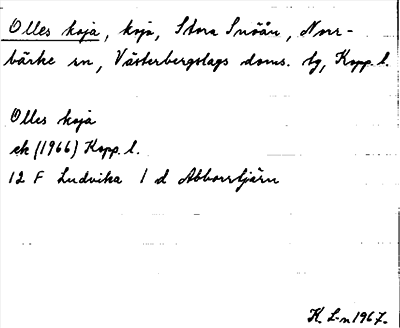 Olles koja, koja, Stora Snöån, Norr-
bärke sn, Västerbergslags doms. tg, Kopp. l.
Olles koja
ek (1966) Kopp. l.
12 F Ludvika 1 d Abborrtjärn
K. L-n 1967.